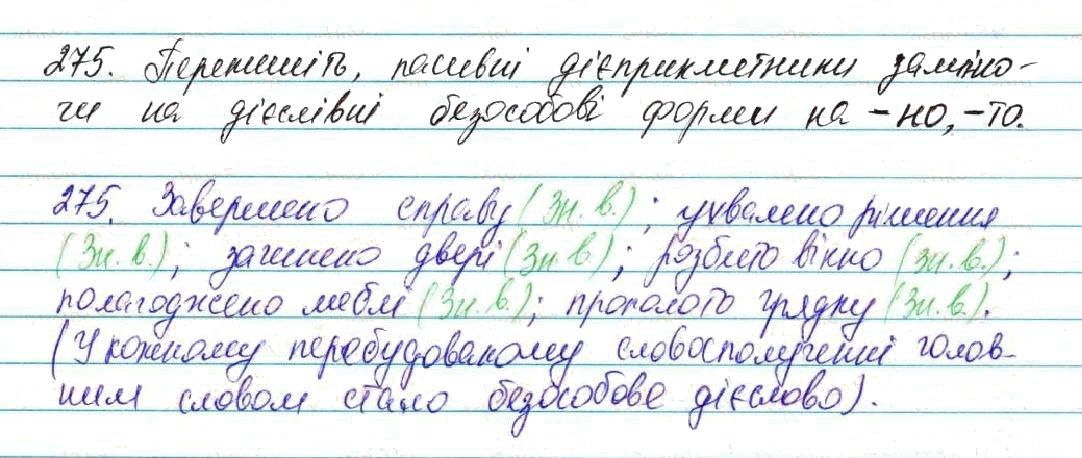 275. Перепишіть, пасивні дієприкметники заміню-
чи на дієслівні безособові форми на -но, -то.
275. Завершено справу (Зн. в.); ухвалено рішення
(Зн. в.); зачинено двері (Зн. в.); розбито вікно (Зн. в.);
полагоджено меблі (Зн. в.); прополото грядку (Зн. в.).
(У кожному перебудованому словосполученні голов-
ним словом стало безособове дієслово).